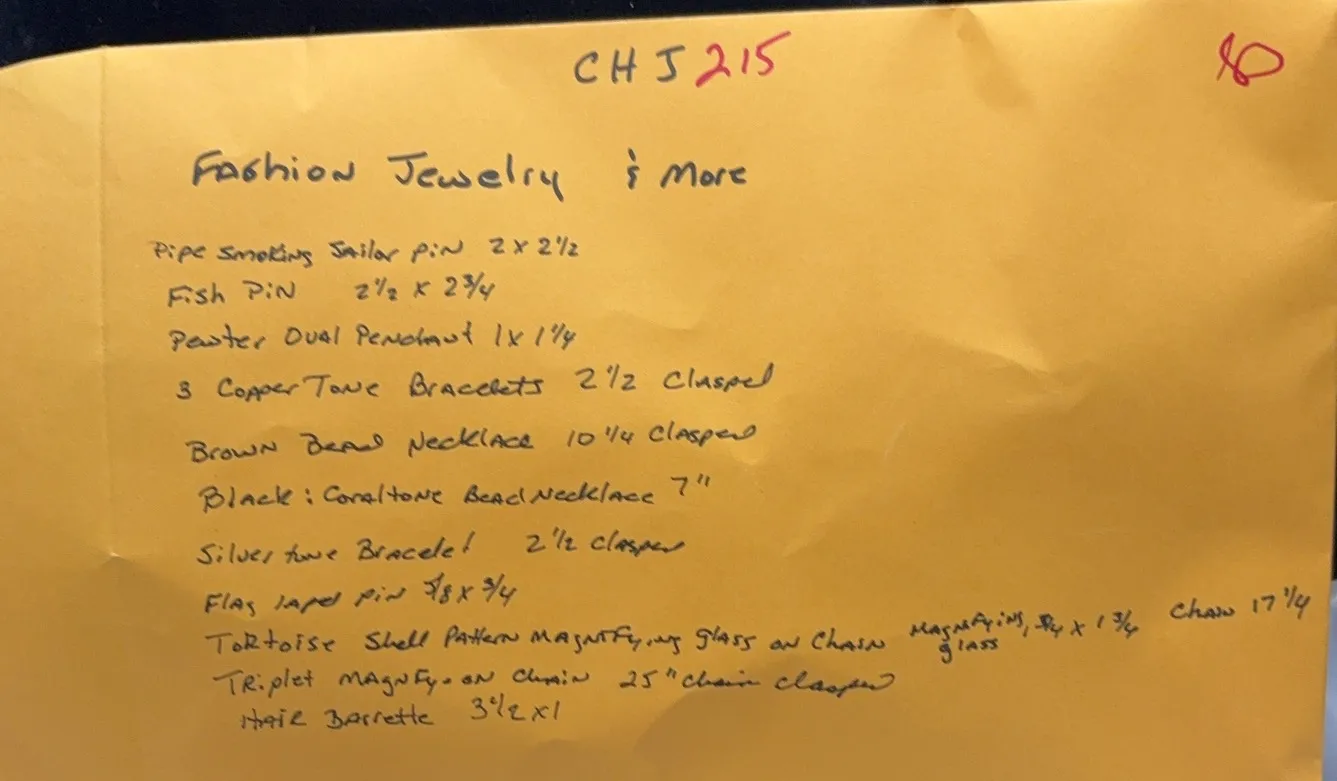 CHJ 215
Fashion Jewelry & More
Pipe Smoking Sailor Pin 2 x 2 1/2
Fish Pin 2 1/2 x 2 3/4
Pewter Oval Pendant 1 x 1 1/4
3 Copper Tone Bracelets 2 1/2 Clasped
Brown Bead Necklace 10 1/4 Clasped
Black & Coraltone Bead Necklace 7"
Silver tone Bracelet 2 1/2 clasped
Flag lapel pin x 3/4
Tortoise Shell Pattern Magnifying glass on Chain Magnifying glass 3/4 x 1 3/4 Chain 17 1/4
Triplet Magnify. on Chain 25" chain clasped
Hair Barrette 3 1/2 x 1